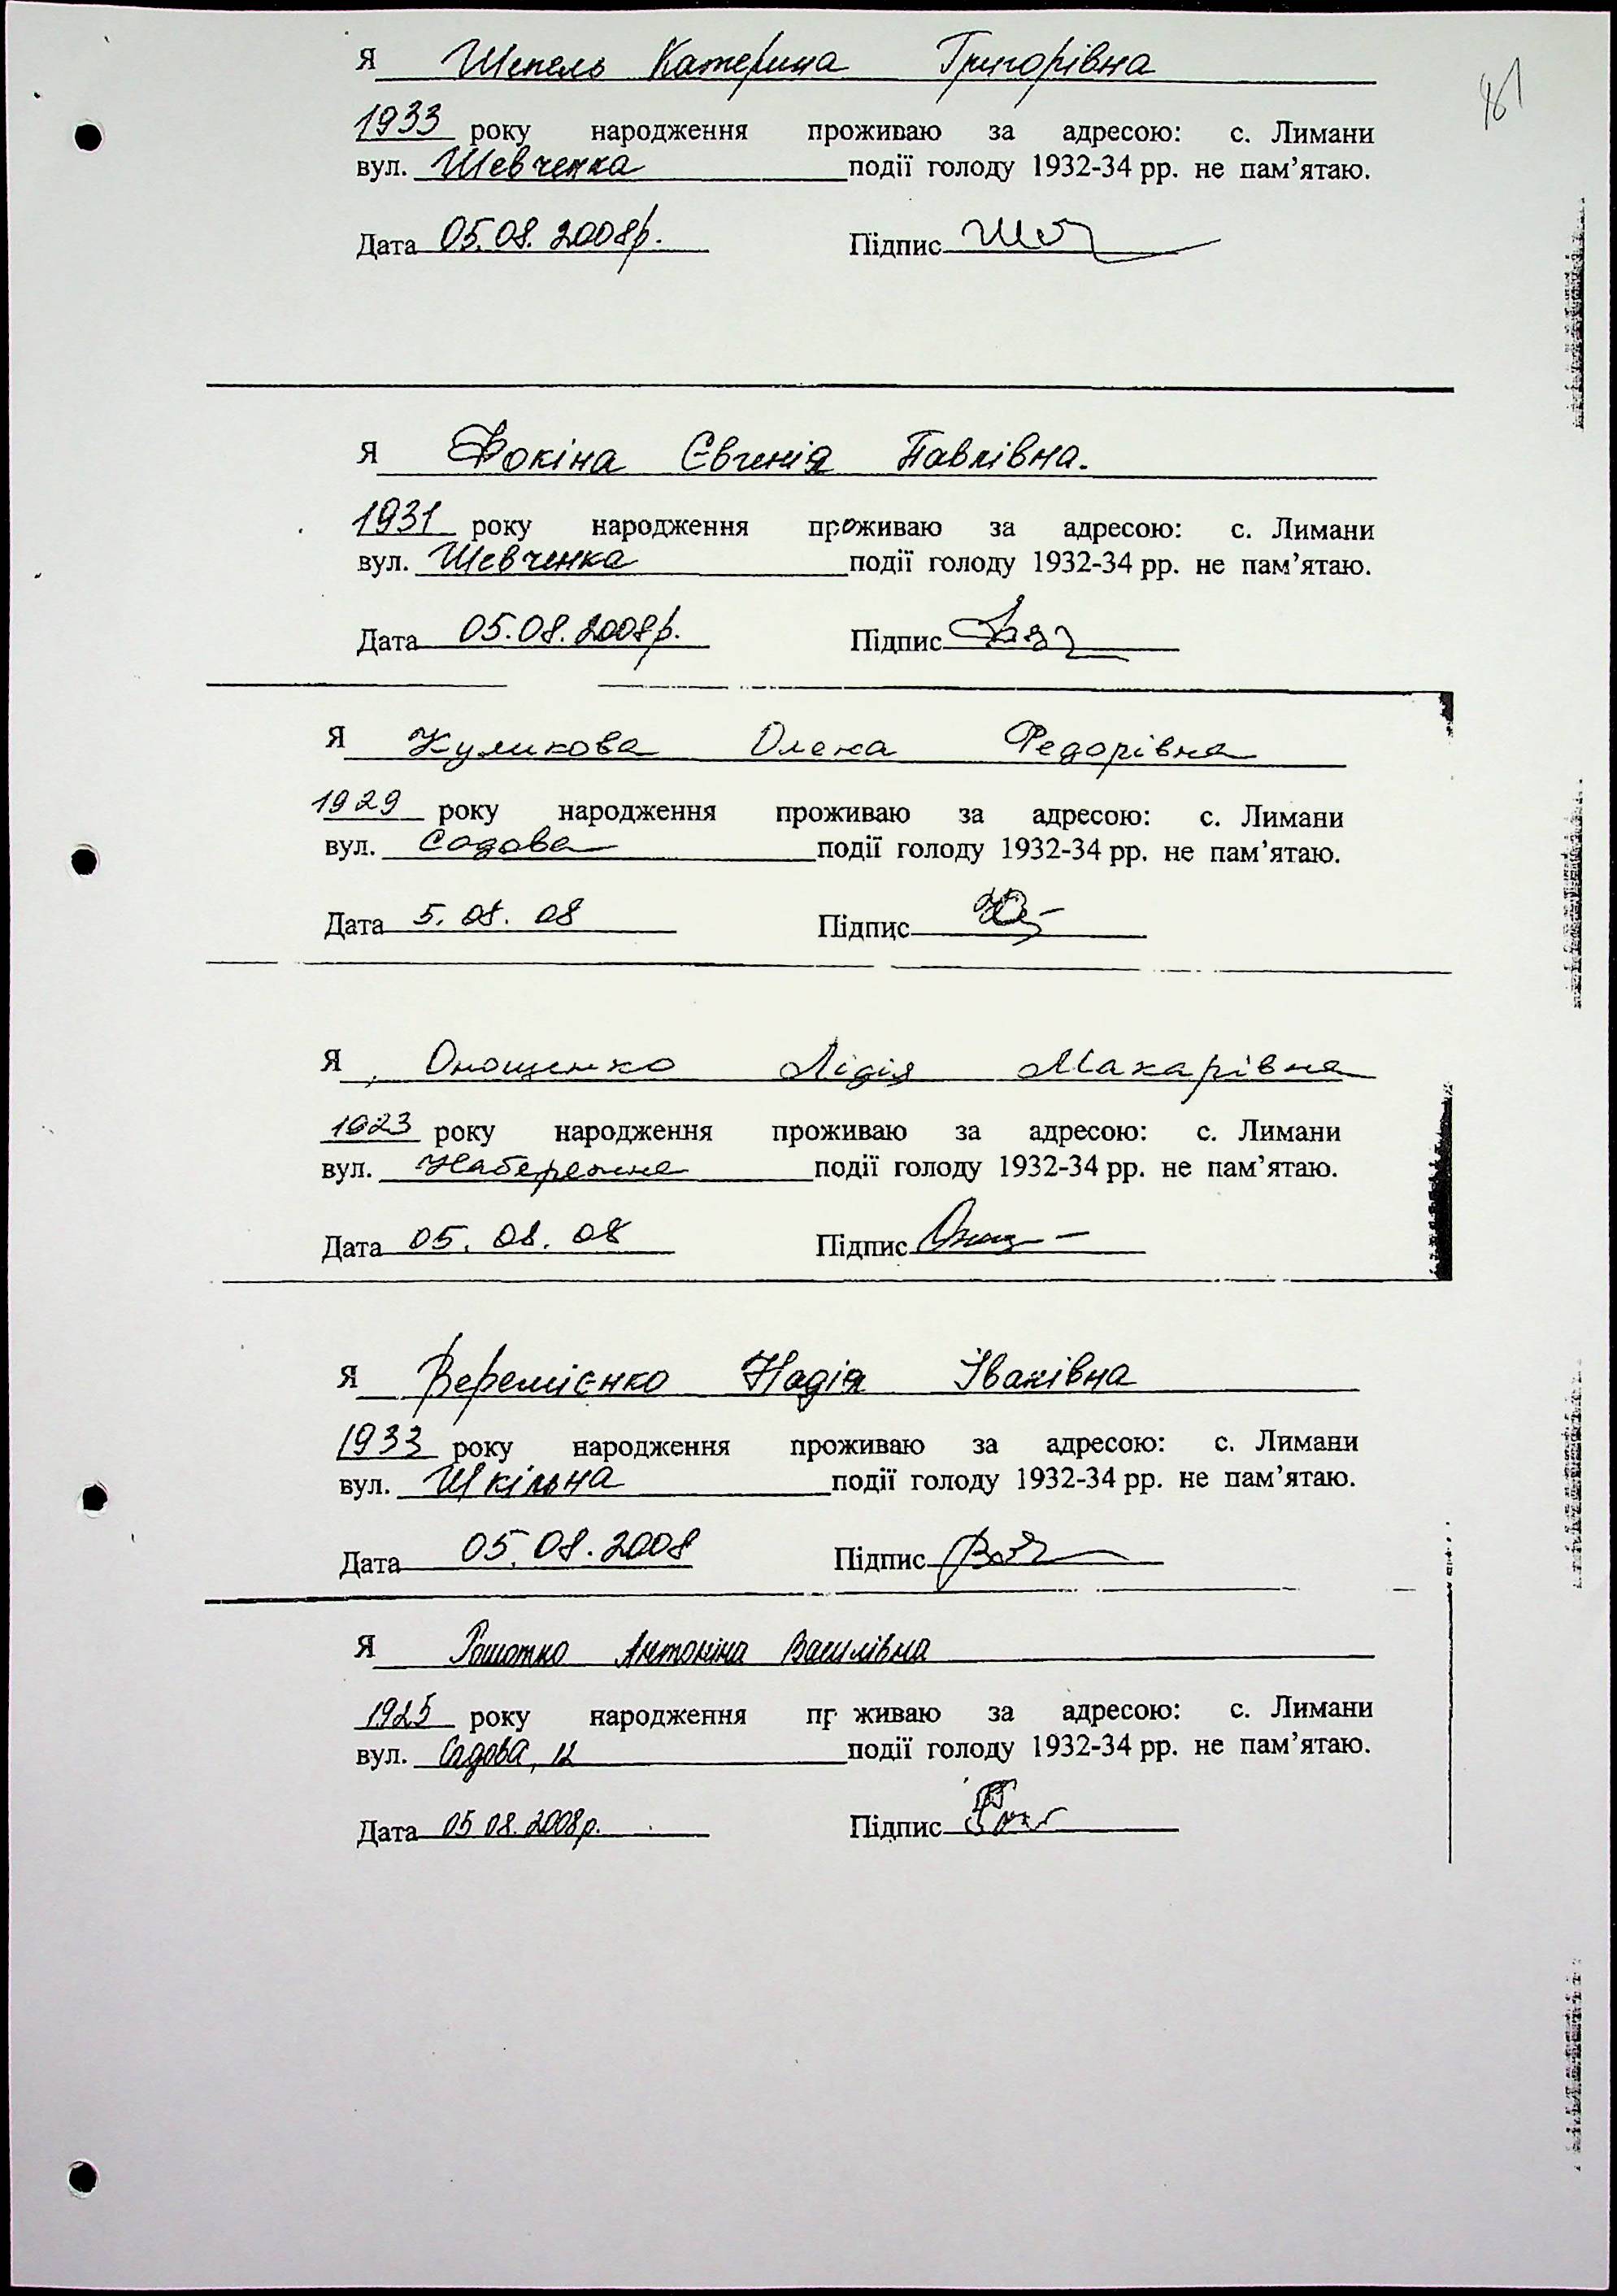 81
Я Шепель Катерина Григорівна
1933 року народження проживаю за адресою: с. Лимани
вул. Шевченка події голоду 1932-34 рр. не пам’ятаю.
Дата 05.08.2008р. Підпис
Я Фокіна Євгенія Павлівна.
1931 року народження проживаю за адресою: с. Лимани
вул. Шевченка події голоду 1932-34 рр. не пам’ятаю.
Дата 05.08.2008р. Підпис
Я Куликова Олена Федорівна
1929 року народження проживаю за адресою: с. Лимани
вул. Садова події голоду 1932-34 рр. не пам’ятаю.
Дата 5.08.08 Підпис
Я Онощенко Лідія Макарівна
1923 року народження проживаю за адресою: с. Лимани
вул. Набережна події голоду 1932-34 рр. не пам’ятаю.
Дата 05.08.08 Підпис
Я Веремієнко Надія Іванівна
1933 року народження проживаю за адресою: с. Лимани
вул. Шкільна події голоду 1932-34 рр. не пам’ятаю.
Дата 05.08.2008 Підпис
Я Антоніна Василівна
1925 року народження пр живаю за адресою: с. Лимани
вул. Садова, 12 події голоду 1932-34 рр. не пам’ятаю.
Дата 05 08.2008р. Підпис